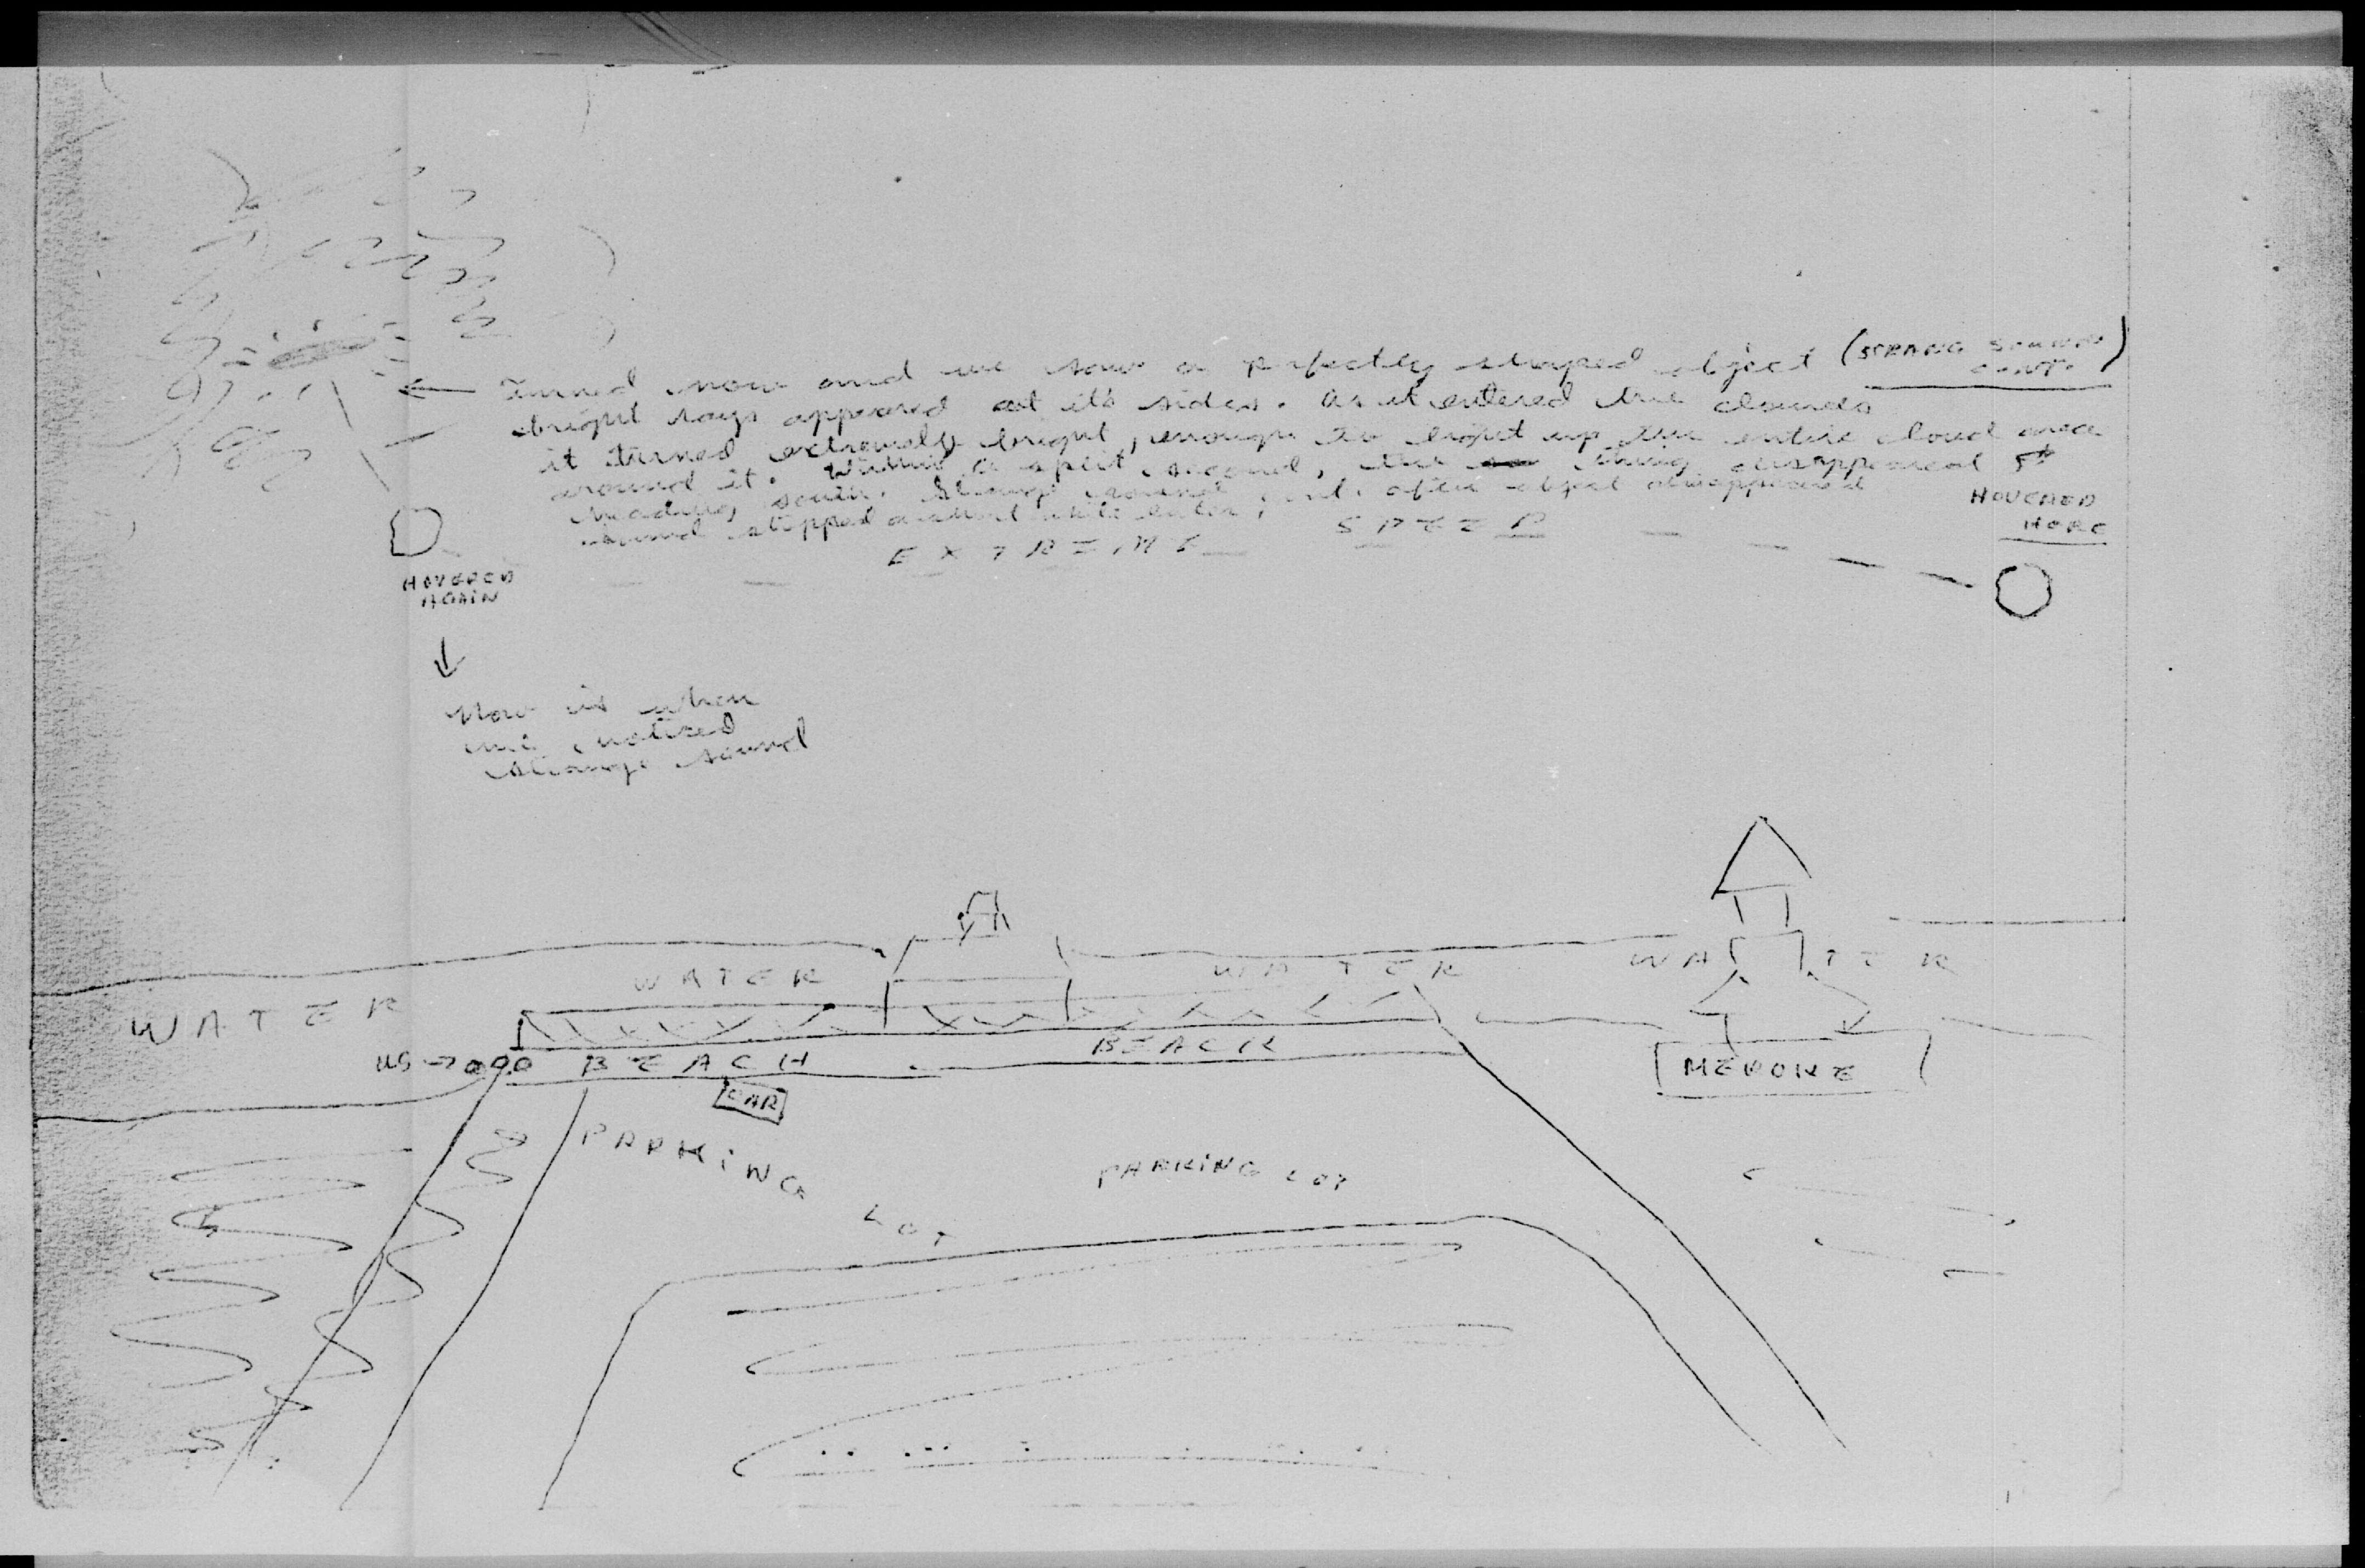 Turned now and we saw a perfectly shaped object (STRANG SOUND CONT.)
bright rays appeared at it's sides. As it entered the clouds
it turned extremely bright, enough to light up the entire cloud area
around it. Within a split second, the thing disappeared
heading south. Strange sound after object disappeared
sound stopped a short while later,
EXTREME SPEED
HOVERED
HERE
HOVERED
AGAIN
Now is when
we notized
strange sound
WATER
WATER
WATER
WATER
US → BEACH
BEACH
MEROKE
CAR
PARKING LOT
PARKING LOT